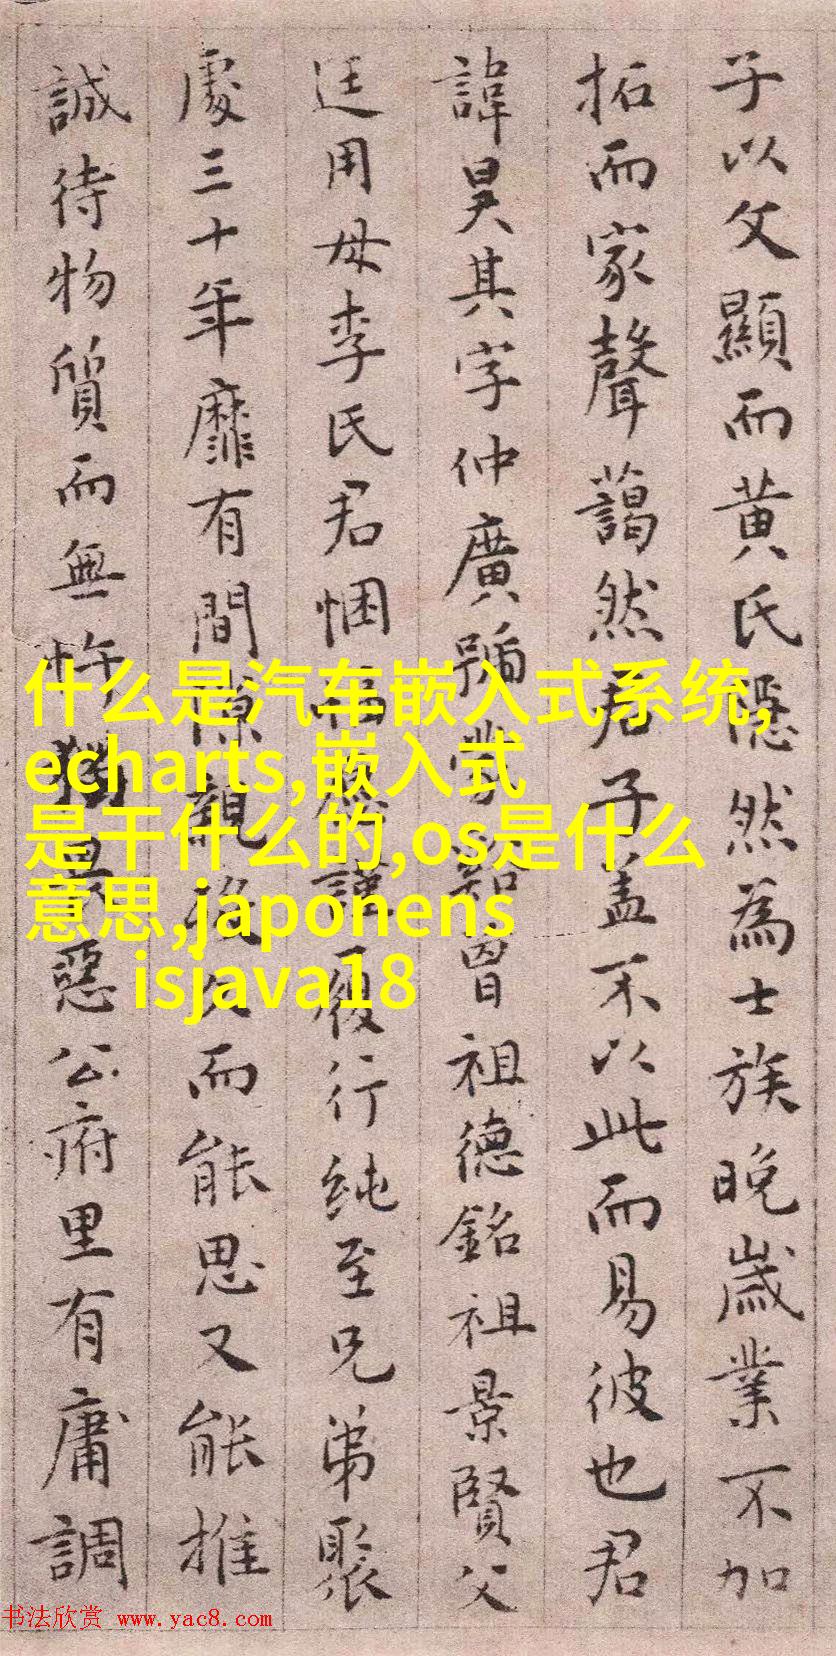 子以父顯而黄氏隱然為士族晚歲業不加
拓而家聲藹然君子盖不以此而易彼也君
諱昊其字仲廣號㫄谿曾祖德銘祖景賢父
廷用母李氏君悃愊謹履行纯至兄弟聚
處三十年靡有間隙親後久而能思又能推
誠待物質而無忤獨畏惡公府里有庸調
什么是汽车嵌入式系统,
echarts,嵌入式
是干什么的,os是什么
意思,japonens
isjava18
书法欣赏 www.yac8.com